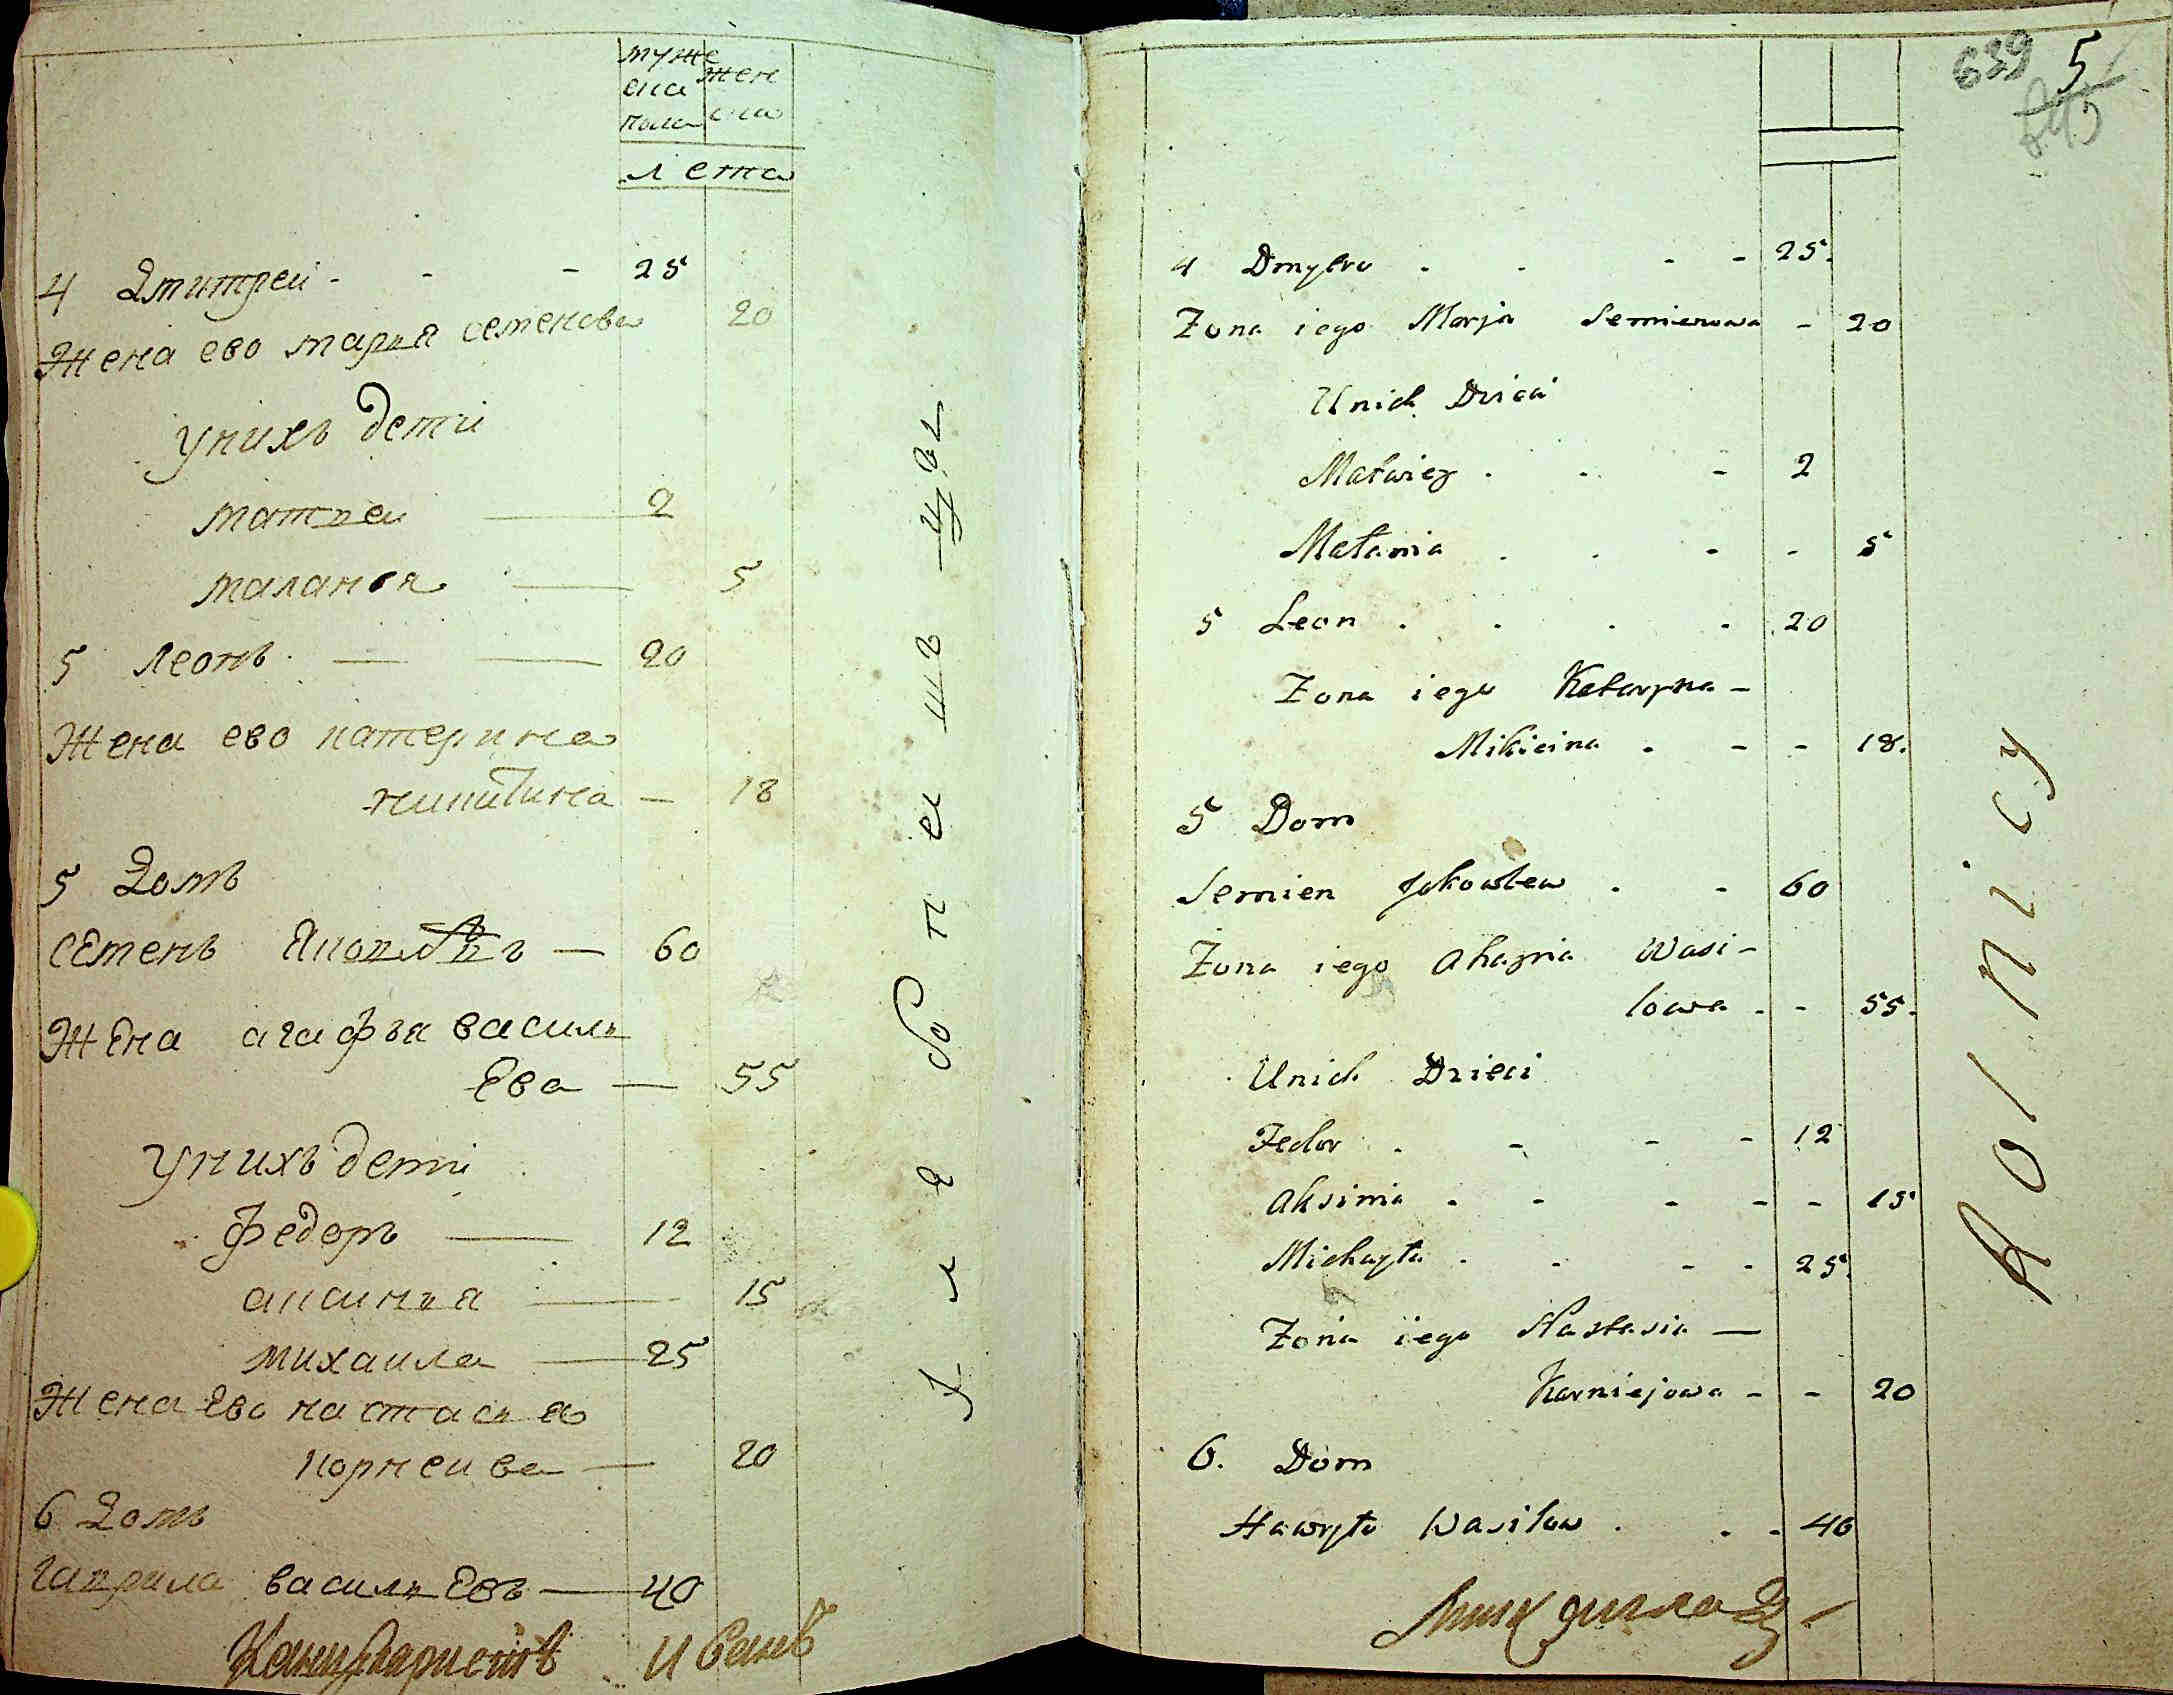 муже жен
ска ска
пола
лета
4 Дмитреи - - - 25
Жена ево мария семенова 20
у нихъ дети
матвеи — 2
маланья — 5
5 леонъ — — 20
Жена ево катерина
микитина — 18
5 Домъ
семенъ Яковлевъ — 60
Жена агафья василь
ева — 55
у нихъ дети
федоръ — 12
аксинья — 15
михаила — 25
Жена ево настасья
корнеива — 20
6 Домъ
гаврила васильевъ — 40
Канцеляристъ Иванъ
639 5
4 Dmytro . . - - 25.
Zona iego Marja Semienowa - 20
Unich Dzieci
Matwiey . . - 2
Małania . . - - 5
5 Leon . . . . 20
Zona iego Kataryna -
Mikicina . - - 18.
5 Dom
Semien Jakowlew . - 60
Zona iego Ahazyia Wasi-
lowa . - 55.
Unich Dzieci
Fedor . - - - 12
Aksinia . - - - - 15
Michayła . . - - 25.
Zona iego Nastasia —
Karniejowa - - 20
6. Dom
Hawryło Wasilow . . - 40
михаила
Rolnicy